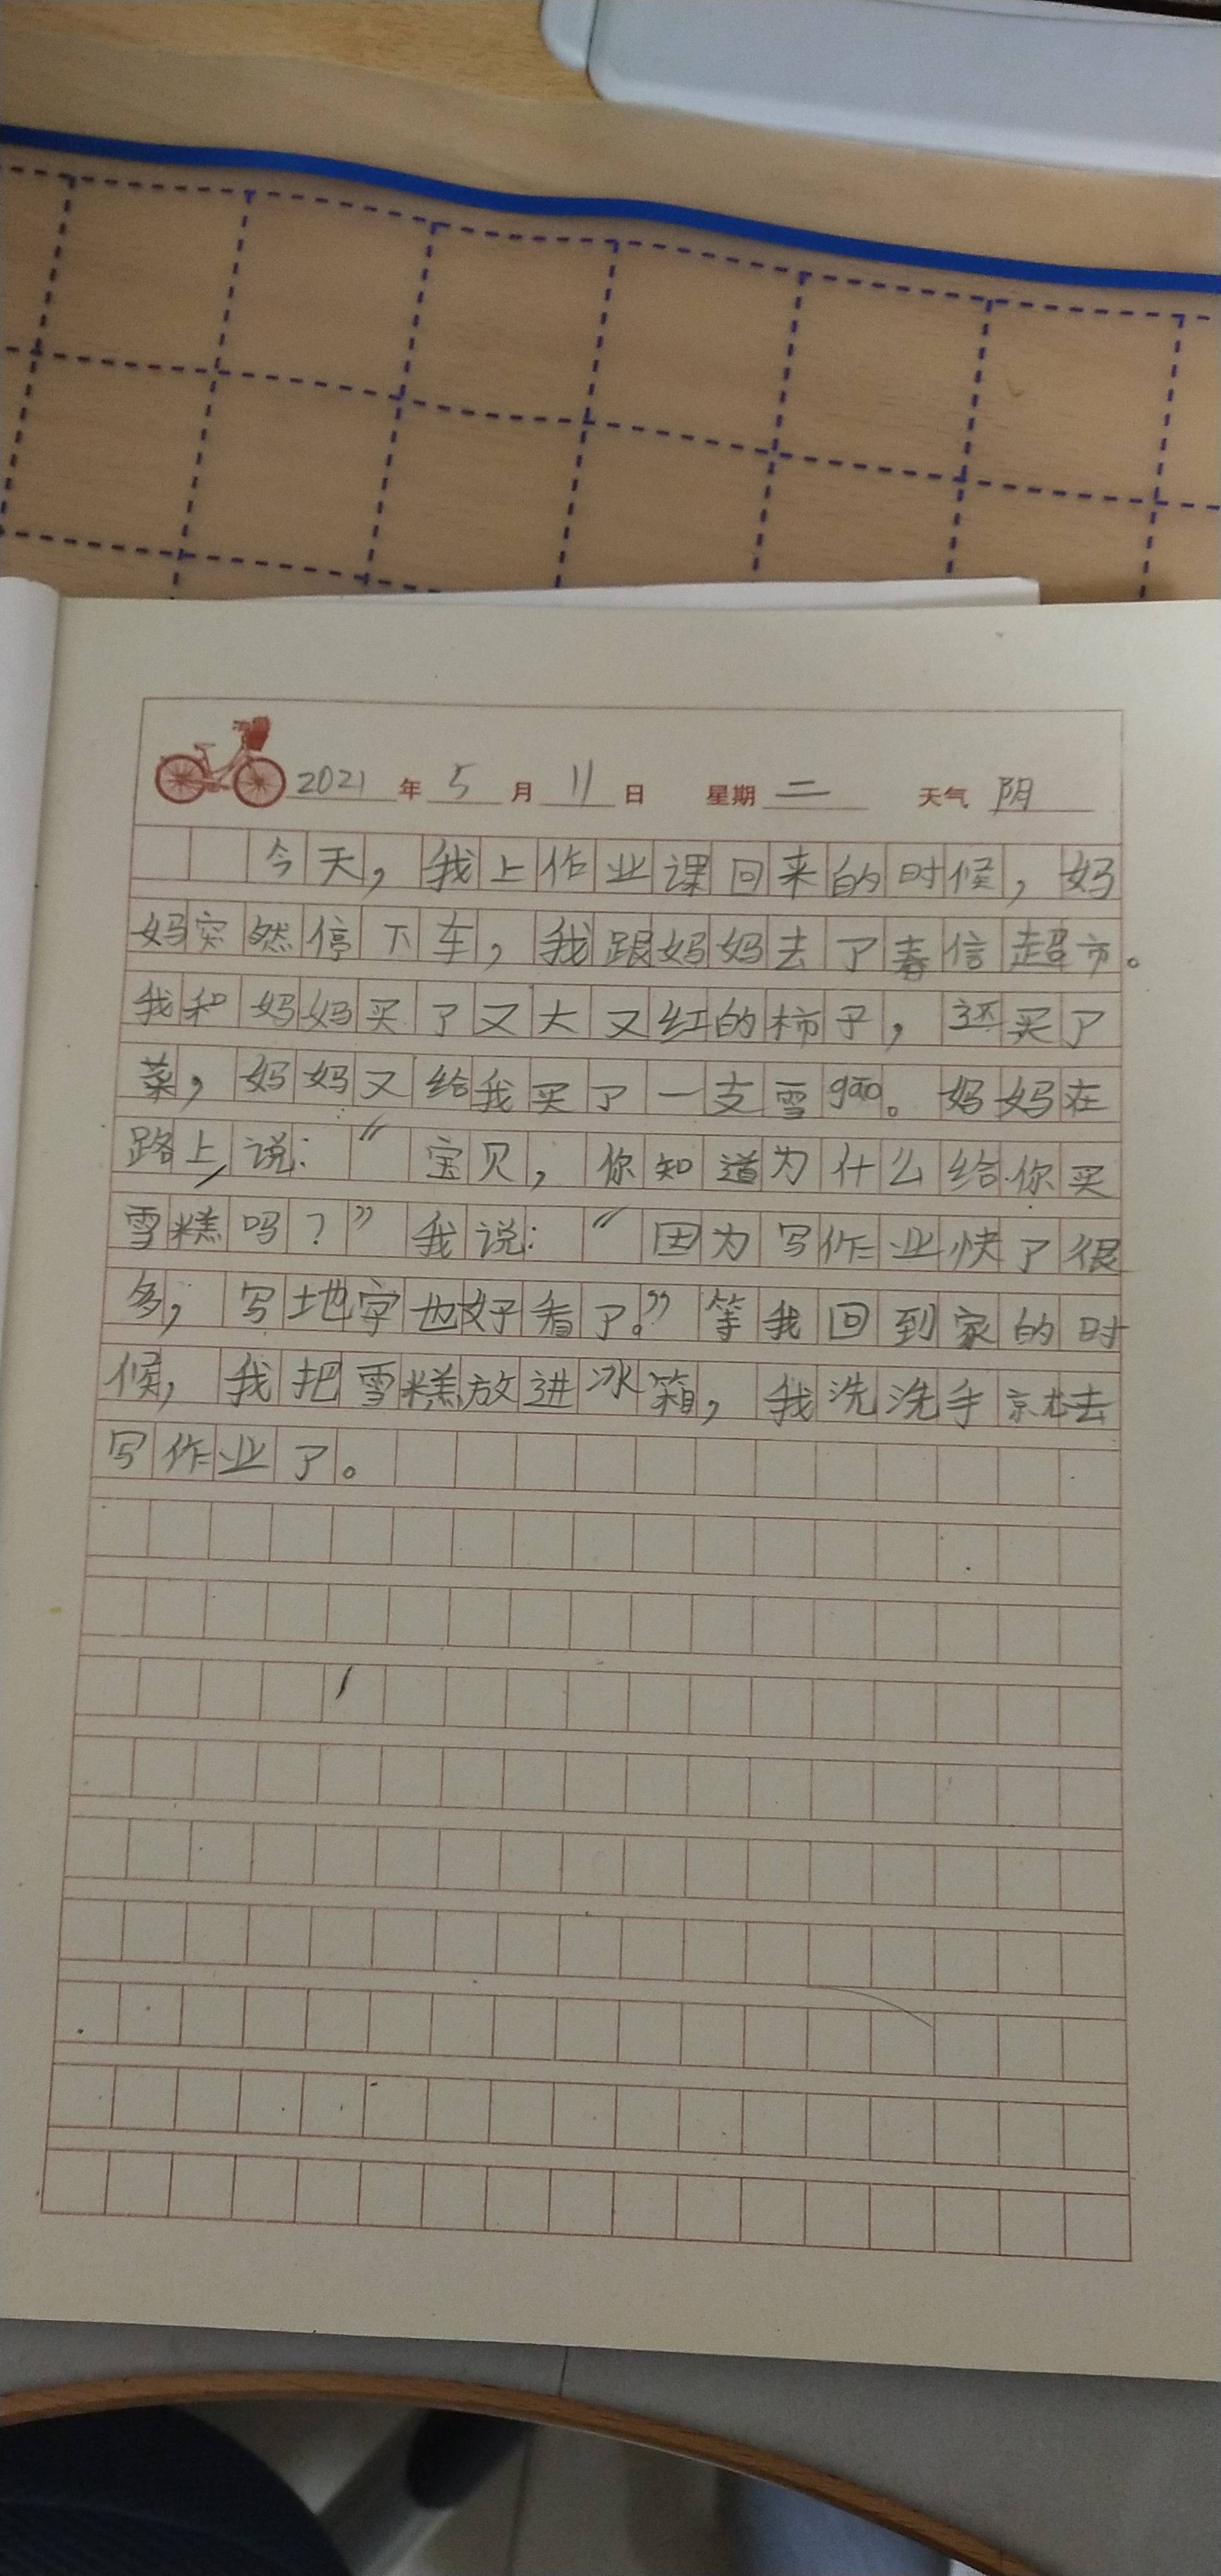 2021年5月11日 星期二 天气 阴
今天，我上作业课回来的时候，妈
妈突然停下车，我跟妈妈去了春信超市。
我和妈妈买了又大又红的柿子，还买了
菜，妈妈又给我买了一支雪gāo。妈妈在
路上，说：“宝贝，你知道为什么给你买
雪糕吗？”我说：“因为写作业快了很
多，写地字也好看了。”等我回到家的时
候，我把雪糕放进冰箱，我洗洗手就去
写作业了。